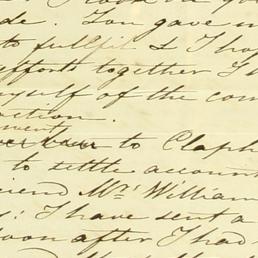 de. You gave m
to fulfil & I ho
effort together I
myself of the com
ction.
to Claph
to settle accoun
iend Mrs. William
I have sent a
oon after I had